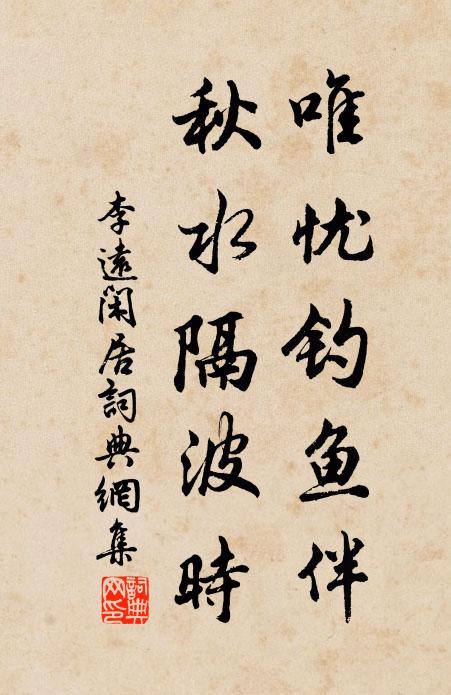 唯忧钓鱼伴
秋水隔波時
李遠閑居詞典網集
詞典網印